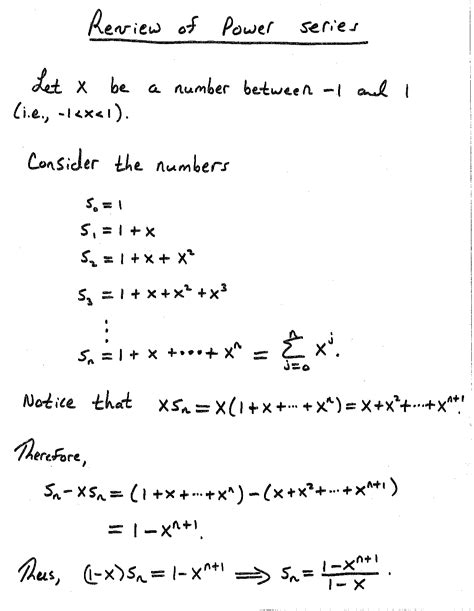 Review of Power series
Let x be a number between -1 and 1
(i.e., -1<x<1).
Consider the numbers
S₀ = 1
S₁ = 1 + x
S₂ = 1 + x + x²
S₃ = 1 + x + x² + x³
⋮
Sₙ = 1 + x + ⋯ + xⁿ = ∑ⱼ₌₀ⁿ xʲ.
Notice that xSₙ = x(1 + x + ⋯ + xⁿ) = x + x² + ⋯ + xⁿ⁺¹.
Therefore,
Sₙ - xSₙ = (1 + x + ⋯ + xⁿ) - (x + x² + ⋯ + xⁿ⁺¹)
= 1 - xⁿ⁺¹.
Thus, (1-x)Sₙ = 1 - xⁿ⁺¹ ⟹ Sₙ = (1 - xⁿ⁺¹)/(1 - x).